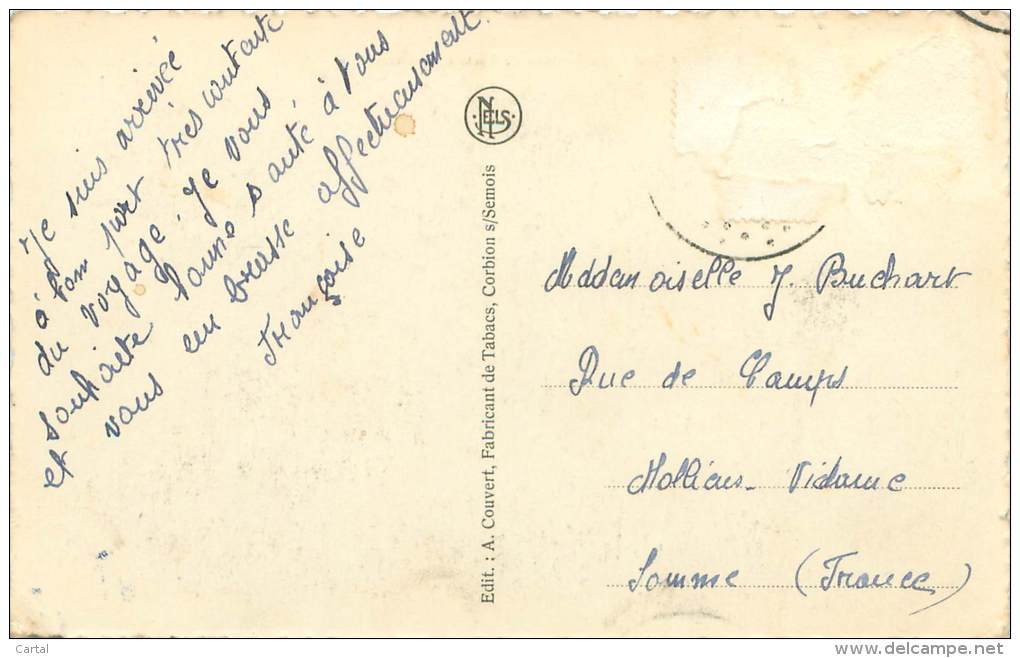 Je suis arrivée
à bon port très contente
du voyage. Je vous
et souhaite bonne santé à tous
vous embrasse affectueusement.
Françoise
NELS
Edit. : A. Couvert, Fabricant de Tabacs, Corbion s/Semois
Mademoiselle J. Buchart
Rue de Camps
Molliens-Vidame
Somme (France)
Cartal
delcampe.net